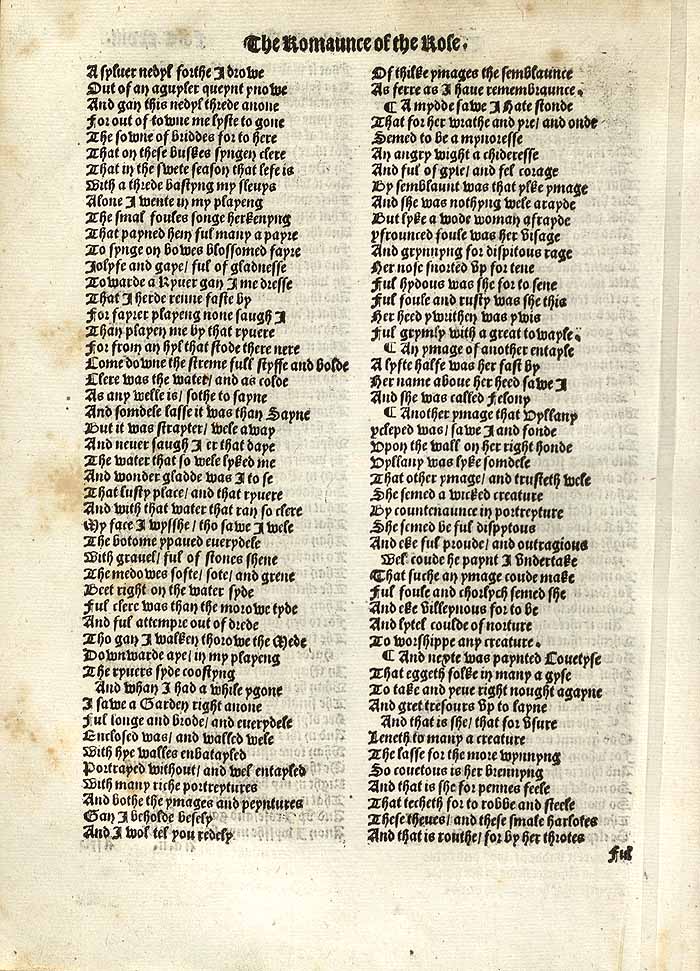 The Romaunce of the Rose.
A syluer nedyl forthe I drowe
Out of an aguyler queynt ynowe
And gan this nedyl threde anone
For out of towne me lyste to gone
The sowne of briddes for to here
That on these buskes syngen clere
That in the swete season that lefe is
With a threde bastyng my sleuys
Alone I wente in my playeng
The smal foules songe herkenyng
That payned hem ful many a payre
To synge on bowes blossomed fayre
Jolyfe and gaye/ ful of gladnesse
Towarde a Ryuer gan I me dresse
That I herde renne faste by
For fayrer playeng none saugh I
Than playen me by that ryuere
For from an hyl that stode there nere
Come downe the streme full styffe and bolde
Clere was the water/ and as colde
As any welle is/ sothe to sayne
And somdele lasse it was than Sayne
But it was strayter/ wele away
And neuer saugh I er that daye
The water that so wele lyked me
And wonder gladde was I to se
That lusty place/ and that ryuere
And with that water that ran so clere
My face I wysshe/ tho sawe I wele
The botome ypaued euerydele
With grauel/ ful of stones shene
The medowes softe/ sote/ and grene
Beet right on the water syde
Ful clere was than the morowe tyde
And ful attempre out of drede
Tho gan I walken thorowe the Mede
Downwarde aye/ in my playeng
The ryuers syde coostyng
And whan I had a while ygone
I sawe a Garden right anone
Ful longe and brode/ and euerydele
Enclosed was/ and walled wele
With hye walles enbatayled
Portrayed without/ and wel entayled
With many riche portreytures
And bothe the ymages and peyntures
Gan I beholde besely
And I wol tel you redely
Of thilke ymages the semblaunce
As ferre as I haue remembraunce.
¶ A mydde sawe I Hate stonde
That for her wrathe and yre/ and onde
Semed to be a mynoresse
An angry wight a chideresse
And ful of gyle/ and fel corage
By semblaunt was that ylke ymage
And she was nothyng wele arayde
But lyke a wode woman afrayde
yfrounced foule was her visage
And grynnyng for dispitous rage
Her nose snorted vp for tene
Ful hydous was she for to sene
Ful foule and rusty was she this
Her heed ywrithen was ywis
Ful grymly with a great towayle.
¶ An ymage of another entayle
A lyfte halfe was her fast by
Her name aboue her heed sawe I
And she was called Felony
¶ Another ymage that Vyllany
ycleped was/ sawe I and fonde
Vpon the wall on her right honde
Vyllany was lyke somdele
That other ymage/ and trusteth wele
She semed a wicked creature
By countenaunce in portreyture
She semed be ful dispytous
And eke ful proude/ and outragious
Wel coude he paynt I vndertake
That suche an ymage coude make
Ful foule and chorlych semed she
And eke villeynous for to be
And lytel coulde of norture
To worshippe any creature.
¶ And nexte was paynted Couetyse
That eggeth folke in many a gyse
To take and yeue right nought agayne
And gret tresours vp to layne
And that is she/ that for vsure
Leneth to many a creature
The lasse for the more wynnyng
So couetous is her brennyng
And that is she for pennes feele
That techeth for to robbe and steele
These theues/ and these smale harlotes
And that is routhe/ for by her throtes
Ful